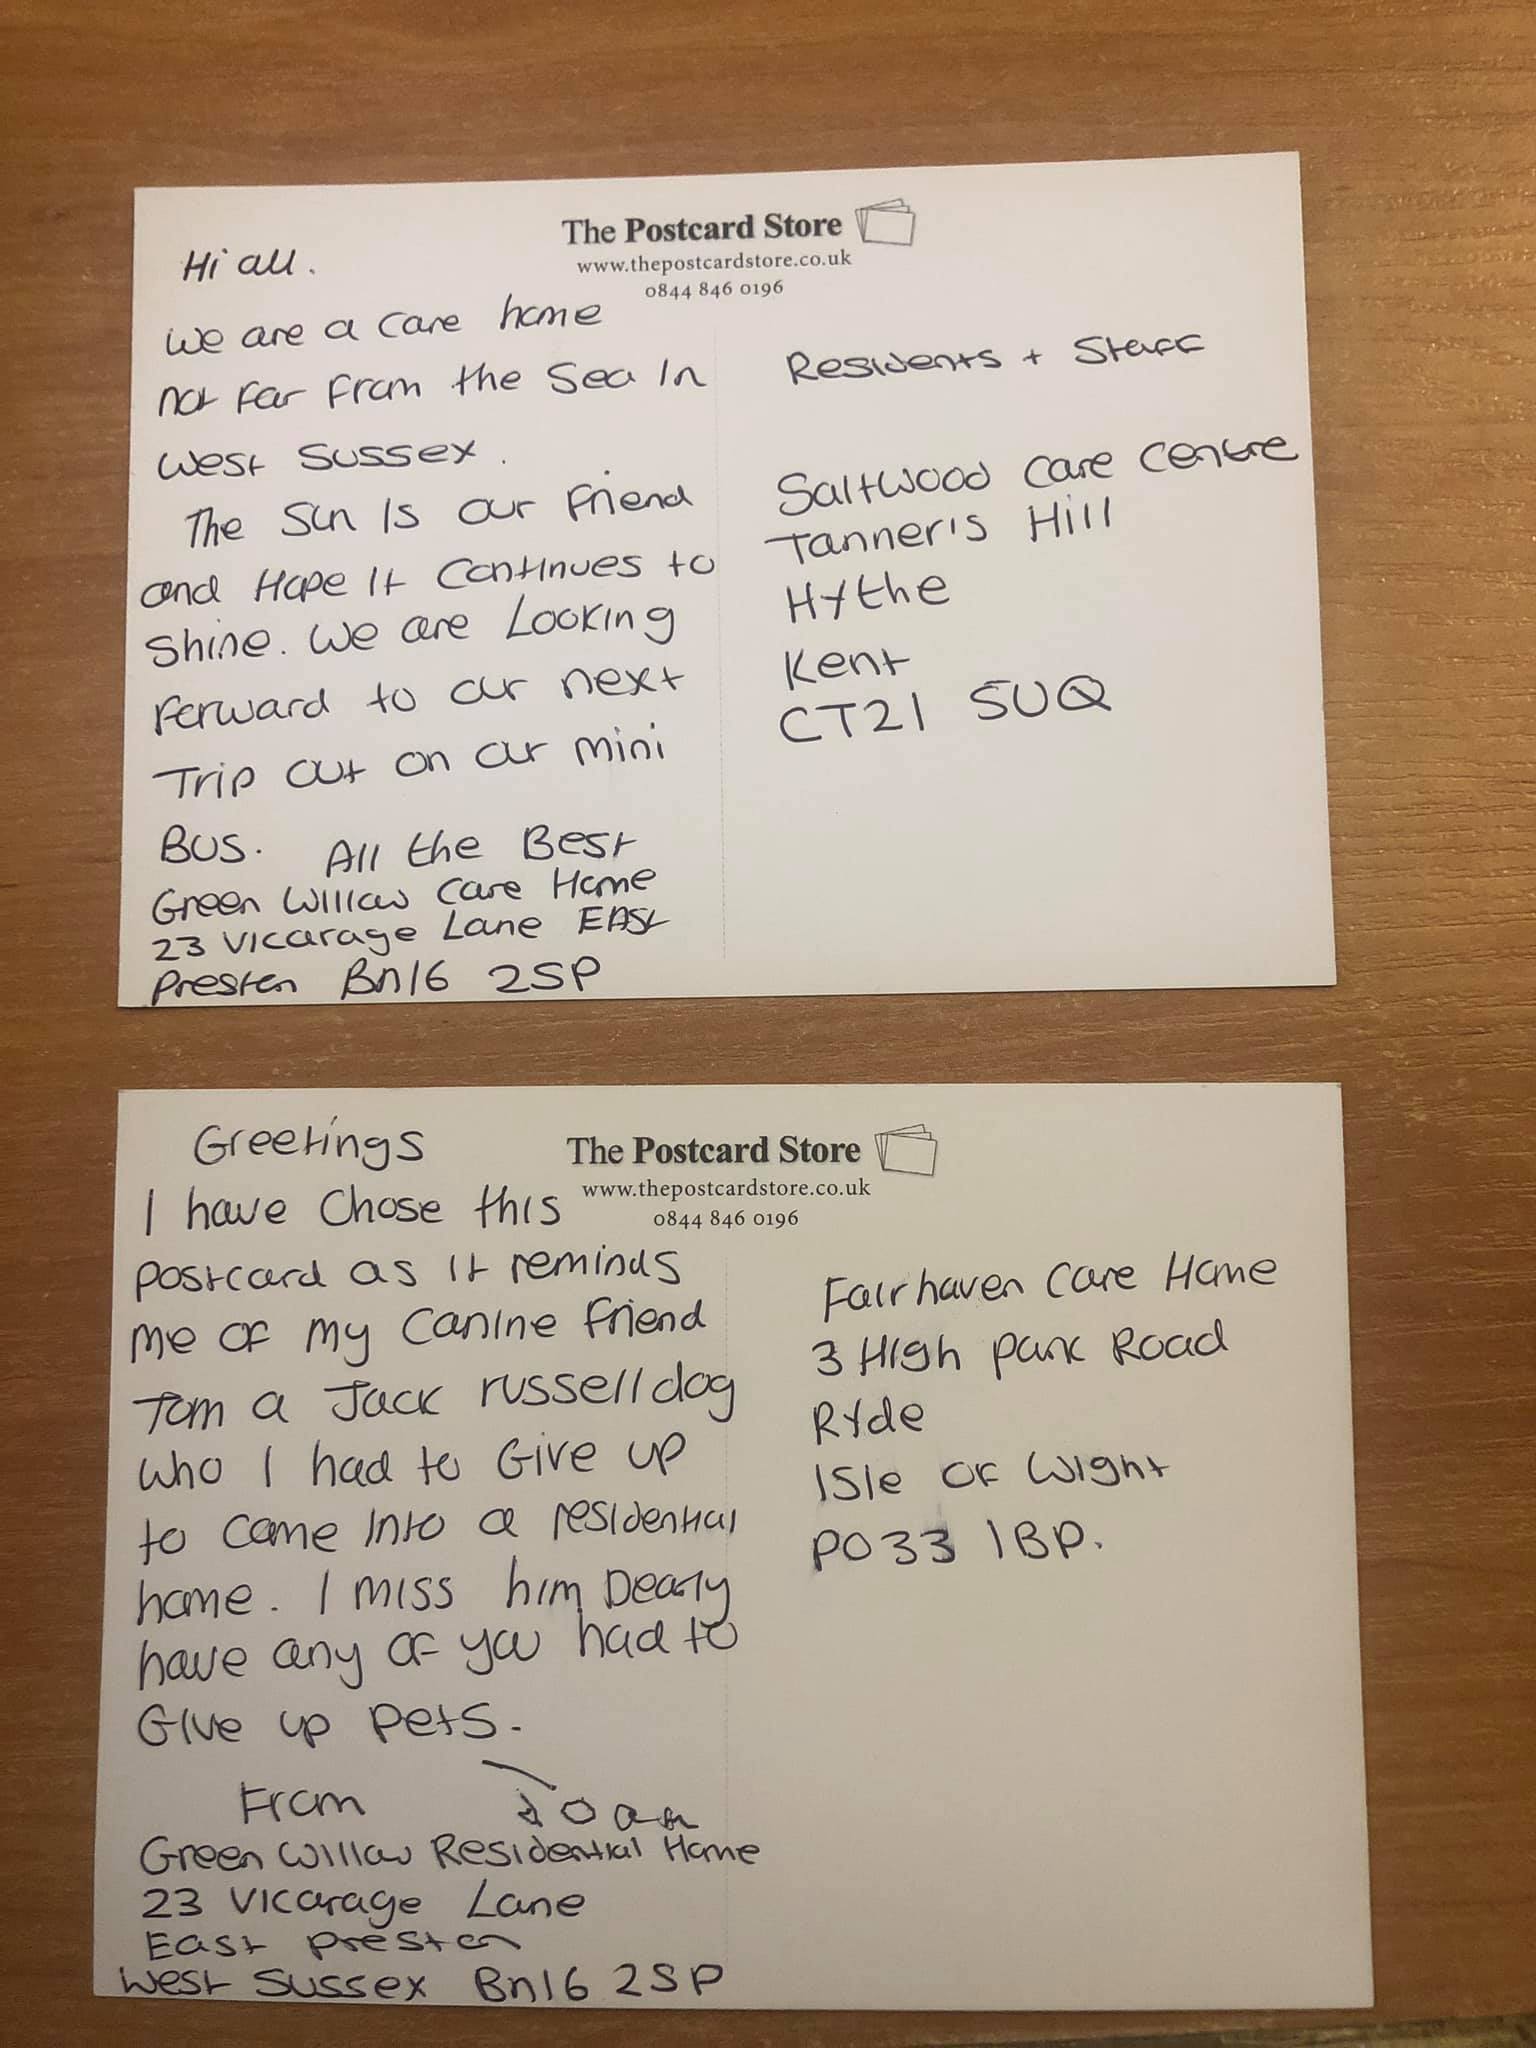 The Postcard Store
www.thepostcardstore.co.uk
0844 846 0196
Hi all.
We are a care home
not far from the sea In
West Sussex.
The sun Is our friend
and Hope It continues to
shine. We are Looking
forward to our next
Trip out on our mini
Bus. All the Best
Green Willow Care Home
23 Vicarage Lane EAST
Preston Bn16 2SP
Residents + Staff
Saltwood Care Centre
Tanner's Hill
Hythe
Kent
CT21 5UQ
The Postcard Store
www.thepostcardstore.co.uk
0844 846 0196
Greetings
I have chose this
postcard as It reminds
me of my canine friend
Tom a Jack russell dog
who I had to Give up
to come Into a residential
home. I miss him Dearly
have any of you had to
Give up pets.
From Joan
Green Willow Residential Home
23 Vicarage Lane
East preston
West Sussex Bn16 2SP
Fairhaven Care Home
3 High park Road
Ryde
Isle of Wight
PO33 1BP.